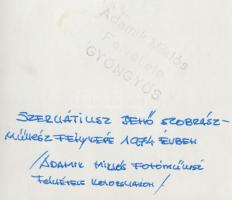 Adamik Miklós
Felvétele
GYÖNGYÖS
SZERVÁTIUSZ JENŐ SZOBRÁSZ-
MŰVÉSZ FÉNYKÉPE 1974 ÉVBEN
/ADAMIK MIKLÓS FOTÓMŰVÉSZ
FELVÉTELE KOLOZSVÁRON/